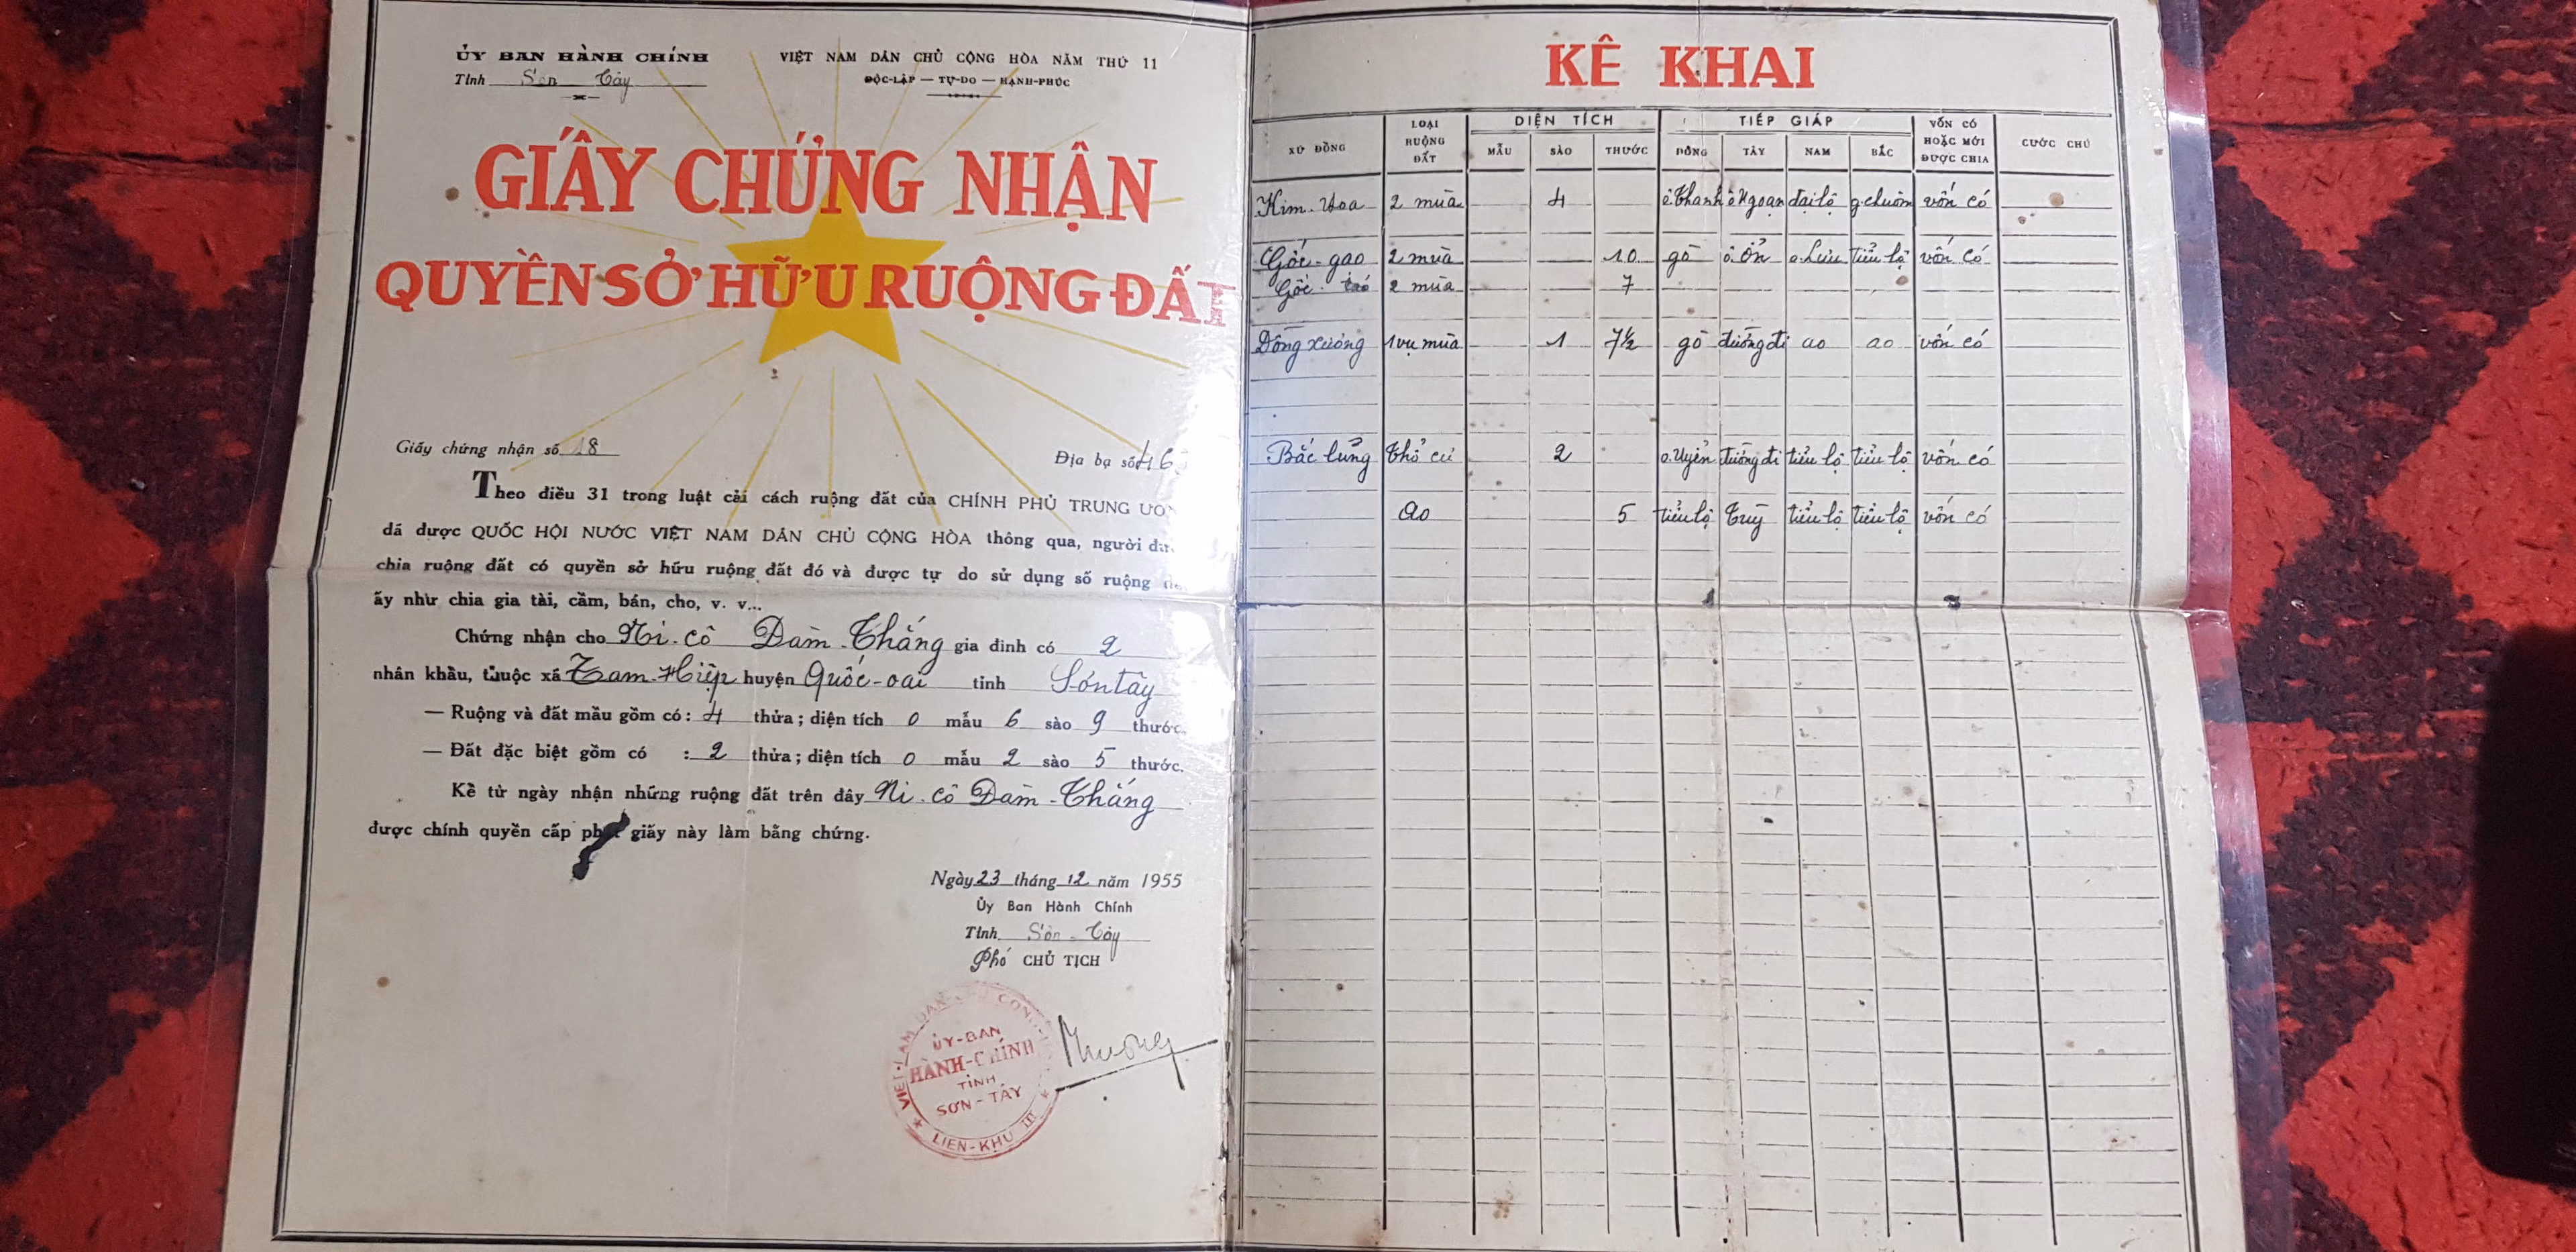 ỦY BAN HÀNH CHÍNH
Tỉnh Sơn Tây
VIỆT NAM DÂN CHỦ CỘNG HÒA NĂM THỨ 11
ĐỘC-LẬP — TỰ-DO — HẠNH-PHÚC
GIẤY CHỨNG NHẬN
QUYỀN SỞ HỮU RUỘNG ĐẤT
Giấy chứng nhận số 18
Địa bạ số
Theo điều 31 trong luật cải cách ruộng đất của CHÍNH PHỦ TRUNG
đã được QUỐC HỘI NƯỚC VIỆT NAM DÂN CHỦ CỘNG HÒA thông qua, người
chia ruộng đất có quyền sở hữu ruộng đất đó và được tự do sử dụng số ruộng
ấy như chia gia tài, cầm, bán, cho, v. v...
Chứng nhận cho Ni. cô Đàm Thắng gia đình có 2
nhân khẩu, thuộc xã Tam-Hiệp huyện Quốc-oai tỉnh Sơn tây
— Ruộng và đất mầu gồm có: 4 thửa; diện tích 0 mẫu 6 sào 9 thước.
— Đất đặc biệt gồm có : 2 thửa; diện tích 0 mẫu 2 sào 5 thước.
Kể từ ngày nhận những ruộng đất trên đây Ni. cô Đàm-Thắng
được chính quyền cấp phát giấy này làm bằng chứng.
Ngày 23 tháng 12 năm 1955
Ủy Ban Hành Chính
Tỉnh Sơn-Tây
Phó CHỦ TỊCH
ỦY-BAN
HÀNH-CHÍNH
TỈNH
SƠN-TÂY
LIÊN-KHU III
KÊ KHAI
XỨ ĐỒNG LOẠI RUỘNG ĐẤT DIỆN TÍCH TIẾP GIÁP VỐN CÓ HOẶC MỚI ĐƯỢC CHIA CƯỚC CHÚ
MẪU SÀO THƯỚC ĐÔNG TÂY NAM BẮC
Kim. Hoa 2 mùa 4 ô Thanh ô Ngoạn đại lộ g.chuôm vốn có
Gốc-gạo 2 mùa 10 gò ô. Ổn ô Lưu tiểu lộ vốn có
Gốc táo 2 mùa 7
Đồng xưởng 1 vụ mùa 1 7½ gò đường đi ao ao vốn có
Bắc lủng Thổ cư 2 o. Uyển đường đi tiểu lộ tiểu lộ vốn có
ao 5 tiểu lộ Tuỳ tiểu lộ tiểu lộ vốn có